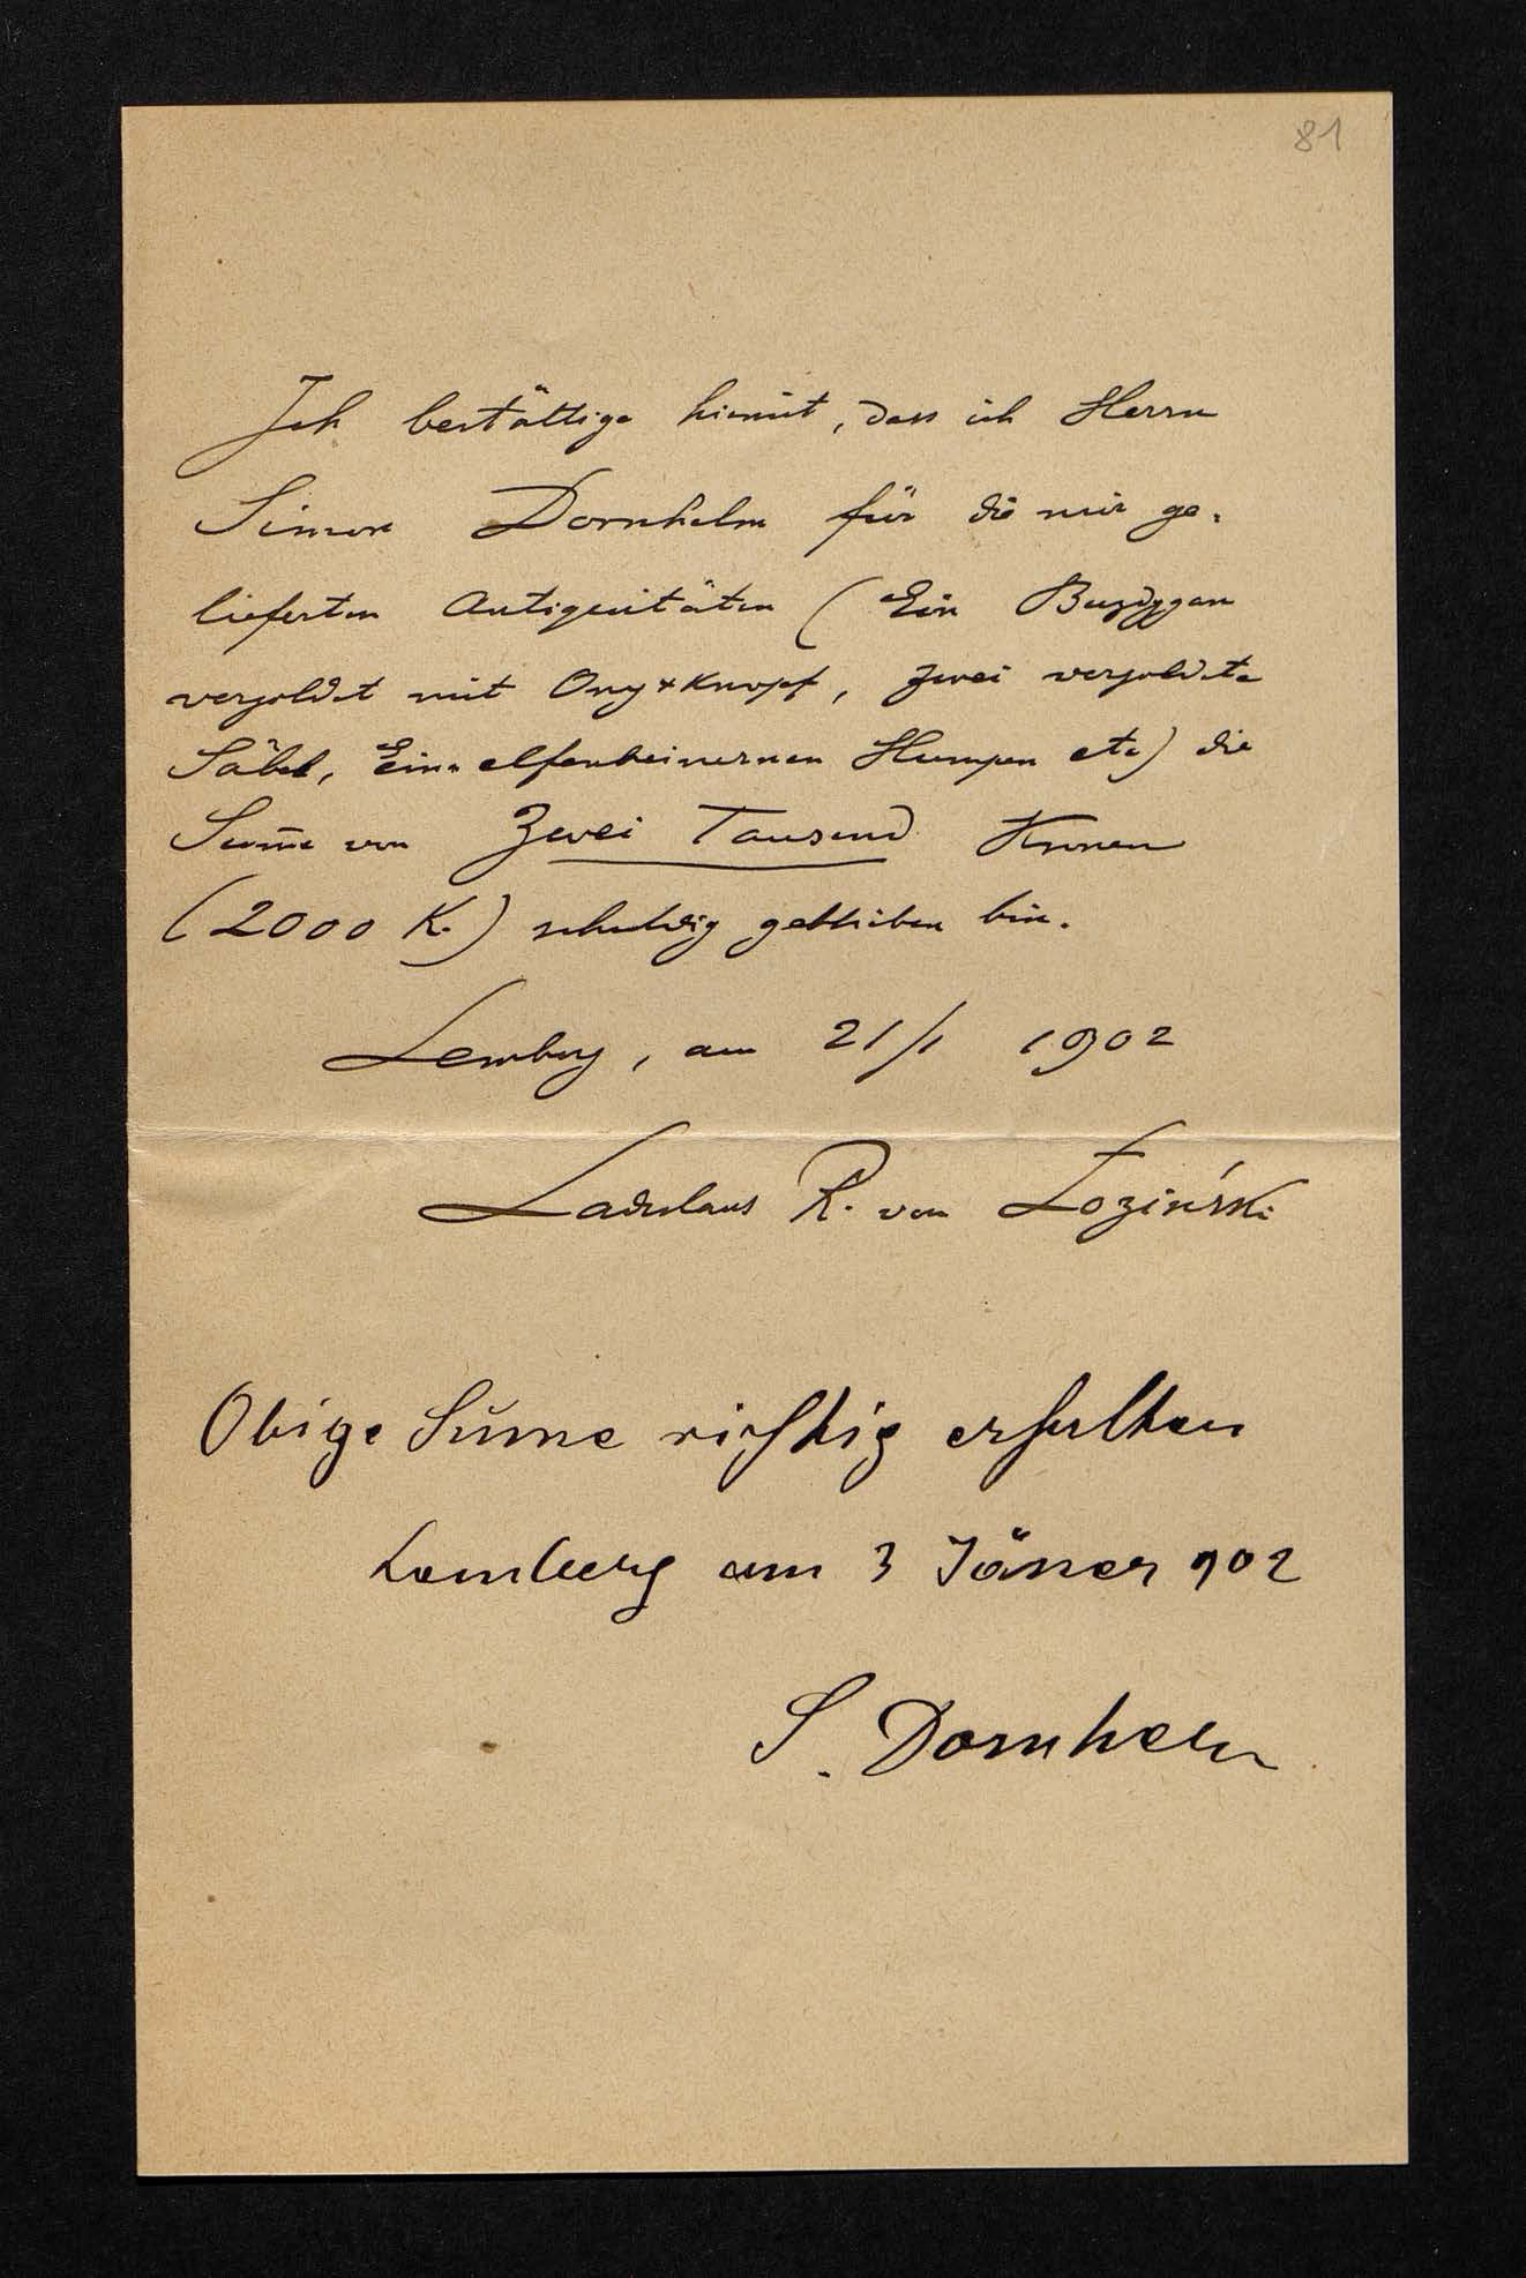 81
Ich bestättige hiemit, dass ich Herrn
Simon Dornhelm für die mir ge-
lieferten Antiquitäten (Ein Buzdygan
vergoldet mit Onyxknopf, zwei vergoldete
Säbel, Einen elfenbeinernen Humpen etc) die
Sum̄e von Zwei Tausend Kronen
(2000 K.) schuldig geblieben bin.
Lemberg, am 21/1 1902
Ladislaus R. von Łoziński
Obige Sume richtig erhalten
Lemberg am 3 Jäner 902
S. Dornhelm